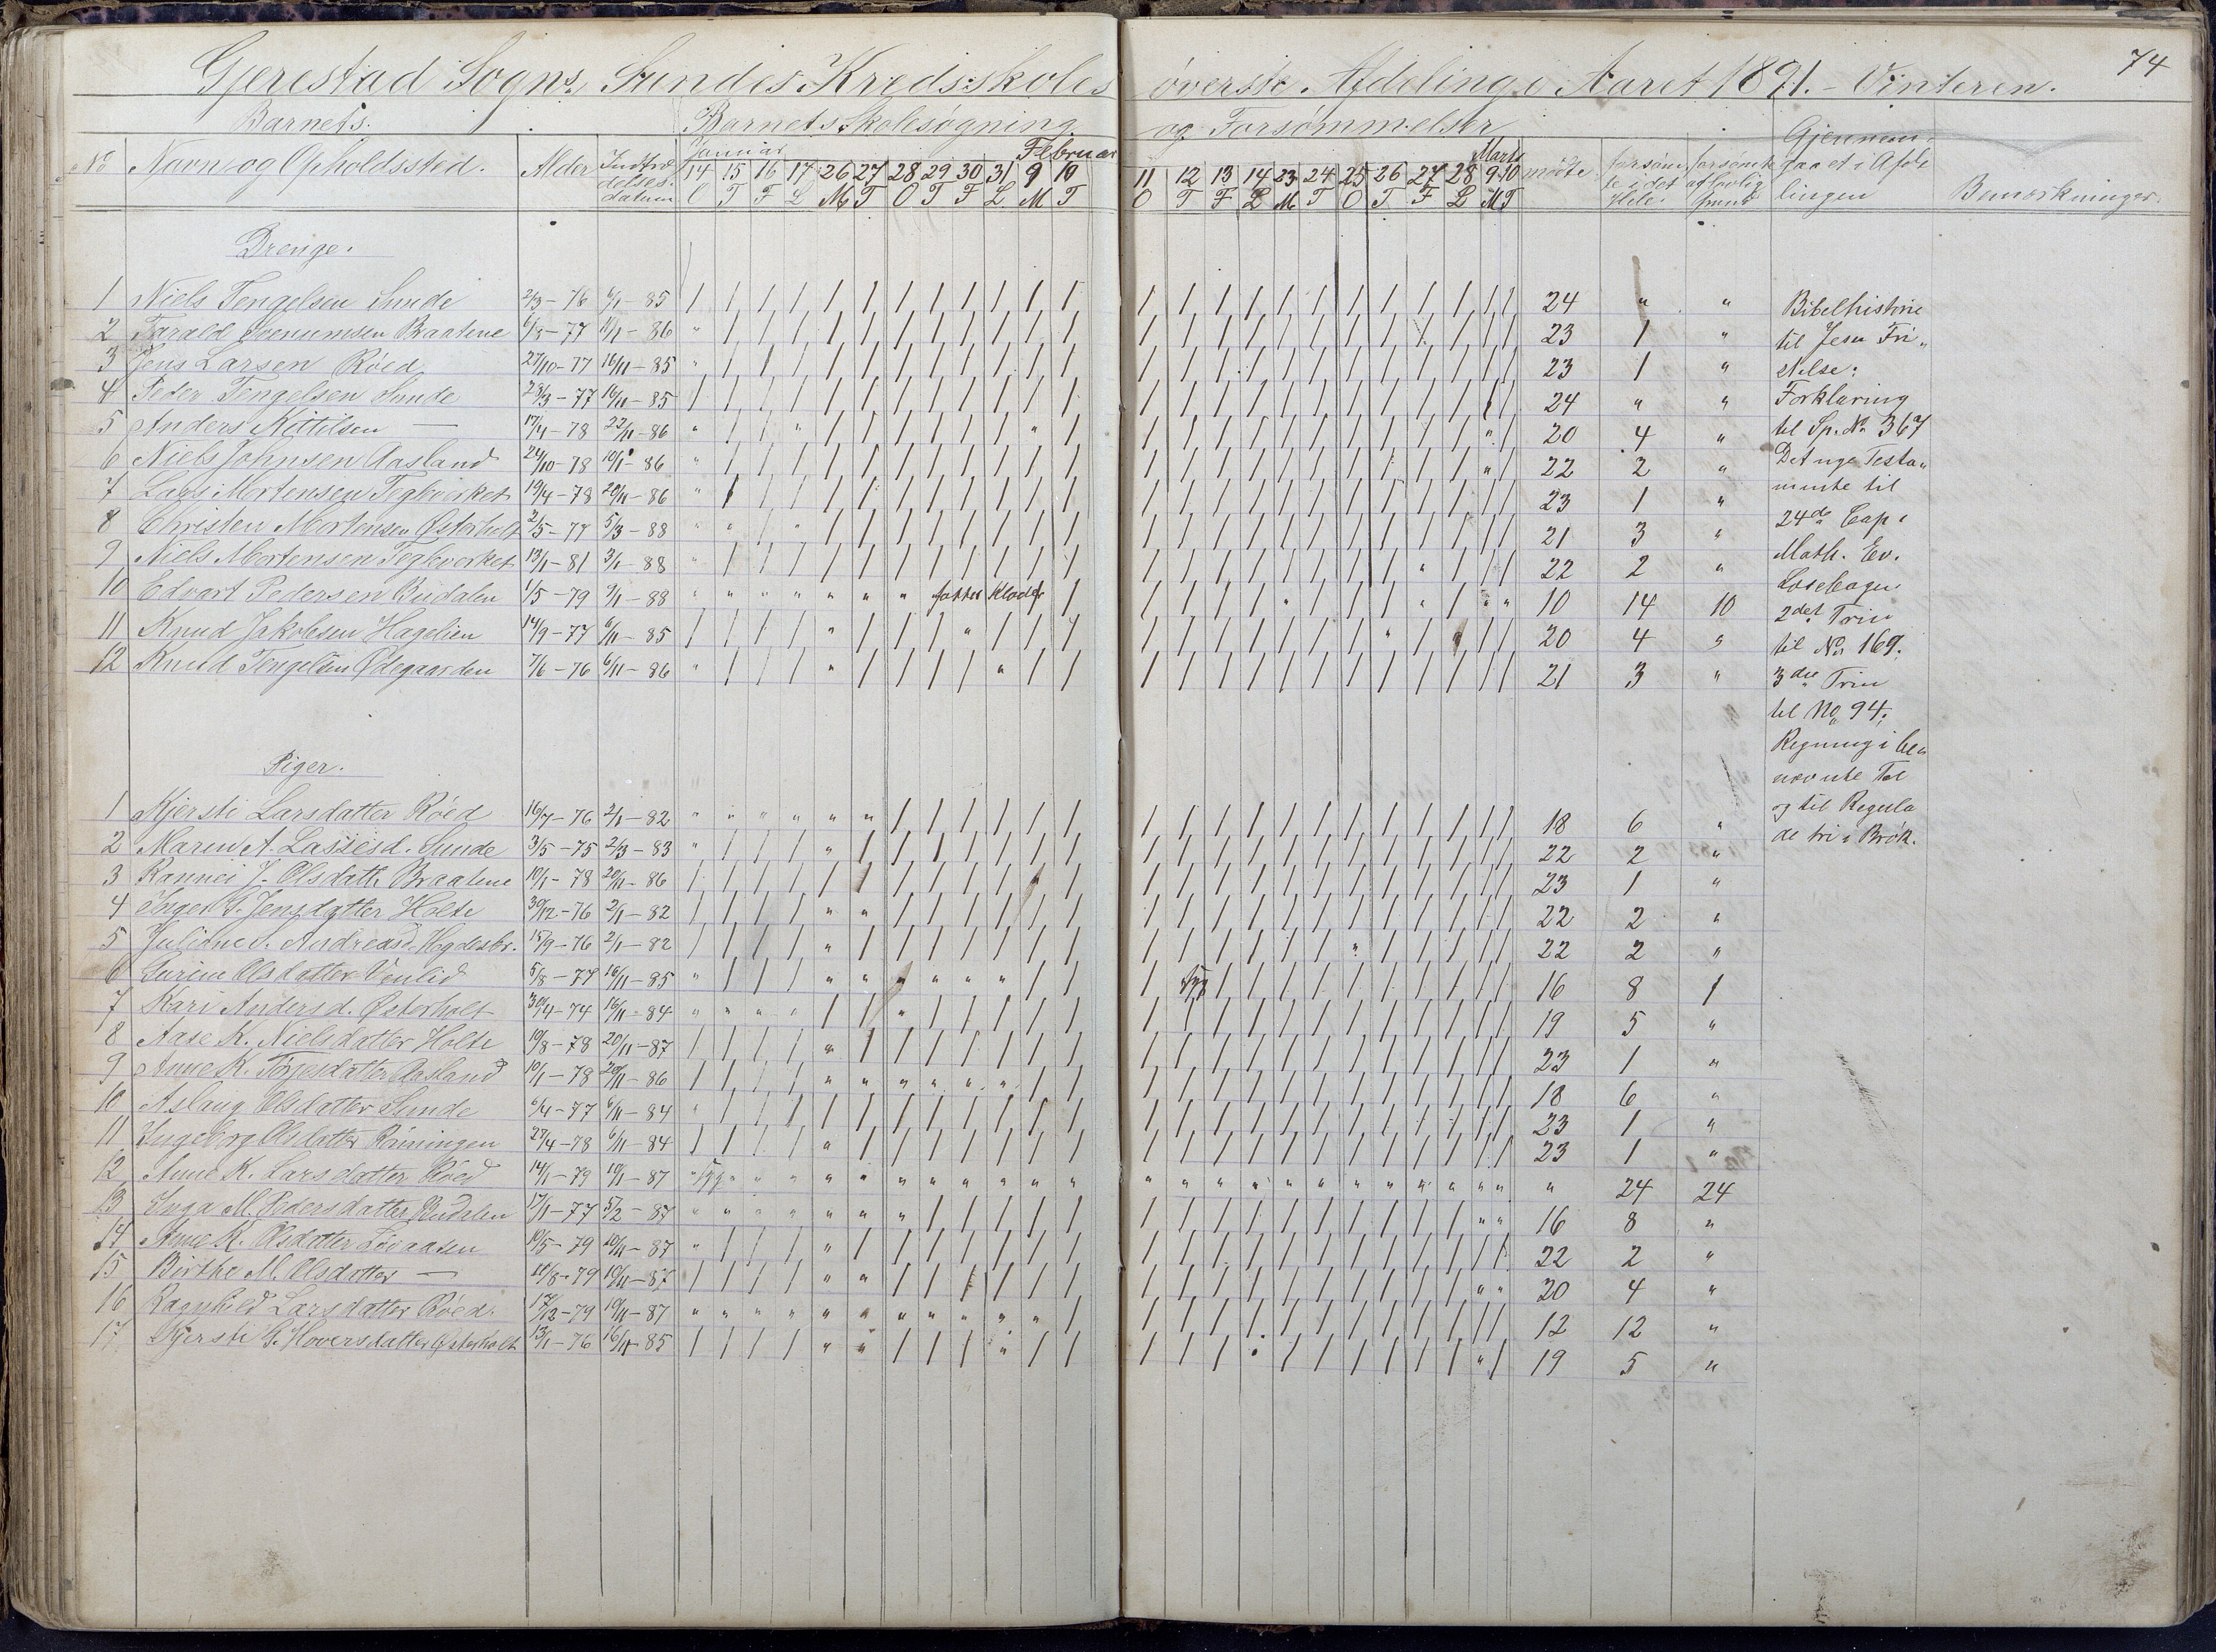 74
Gjerestad Sogns, Sundes Kredsskoles øverste Afdeling i Aaret 1891. – Vinteren.
Barnets. Barnets Skolesøgning og Forsømmelser
No Navn og Opholdssted. Alder Indtrædelses datum Januar Februar Marts mødte forsømte i det Hele forsømt af lovlig Grund Gjennemgaaet i Afdelingen Bemærkninger
14 15 16 17 26 27 28 29 30 31 9 10 11 12 13 14 23 24 25 26 27 28 9 10
O T F L M T O T F L M T O T F L M T O T F L M T
Drenge.
1 Niels Tengelsen Sunde 2/3 – 76 6/1 – 85 24 " " Bibelhistorie
2 Tarald Braatene 6/8 – 77 11/1 – 86 23 1 " til Jesu Fri„
3 Jens Larsen Røed 27/10 – 77 16/11 – 85 23 1 " stelse:
4 Peder Tengelsen Sunde 23/3 – 77 16/11 – 85 24 " " Forklaring
5 Anders Kittilsen — 17/4 – 78 22/11 – 86 20 4 " til Sp. No 367
6 Niels Johnsen Aasland 24/10 – 78 10/1 – 86 22 2 " Det nye Testa„
7 Lars Mortensen Teglverket 19/4 – 78 20/11 – 86 23 1 " mente til
8 Christen Mortensen Østerholt 2/5 – 77 5/3 – 88 21 3 " 24de Cap i
9 Niels Mortensen Teglverket 13/1 – 81 3/1 – 88 22 2 " Math. Ev.
10 Edvart Pedersen Budalen 1/5 – 79 9/1 – 88 fatter Klæder 10 14 10 Læsebogen
11 Knud Jakobsen Hagelien 14/9 – 77 6/11 – 85 20 4 " 2det Trin
12 Knud Tengelsen Ødegaarden 7/6 – 76 6/11 – 86 21 3 " til No 169.
3die Trin
til No 94.
Regning i be„
nævnte Tal
og til Regula
de tri i Brøk.
Piger.
1 Kjersti Larsdatter Røed 16/7 – 76 2/1 – 82 18 6 "
2 Maren A. Lassesd. Sunde 3/5 – 75 2/3 – 83 22 2 "
3 Rannei J. Olsdatt. Braatene 10/1 – 78 20/11 – 86 23 1 "
4 Inger T. Jensdatter Holte 30/12 – 76 2/1 – 82 22 2 "
5 Juliane S. Andreasd. Hegdesbr. 15/9 – 76 2/1 – 82 22 2 "
6 Olsdatter Venlid 5/8 – 77 16/11 – 85 syg 16 8 1
7 Kari Andersd. Østerholt 30/4 – 74 16/11 – 84 19 5 "
8 Aase K. Nielsdatter Holte 19/8 – 78 20/11 – 87 23 1 "
9 Anne K. Tørjesdatter Aasland 10/1 – 78 20/11 – 86 18 6 "
10 Aslaug Olsdatter Sunde 6/4 – 77 6/11 – 84 23 1 "
11 Ingeborg Olsdatter Rønningen 27/4 – 78 6/11 – 84 23 1 "
12 Anne K. Larsdatter Røed 14/1 – 79 19/1 – 87 syg " 24 24
13 Inga M. Pedersdatter Budalen 17/1 – 77 5/2 – 87 16 8 "
14 Anne K. Olsdatter Løvaasen 10/5 – 79 10/11 – 87 22 2 "
15 Birthe M. Olsdatter — 11/8 – 79 19/11 – 87 20 4 "
16 Ragnhild Larsdatter Røed. 13/12 – 79 19/11 – 87 12 12 "
17 Kjersti G. Hoversdatter Østerholt 13/1 – 76 16/11 – 85 19 5 "